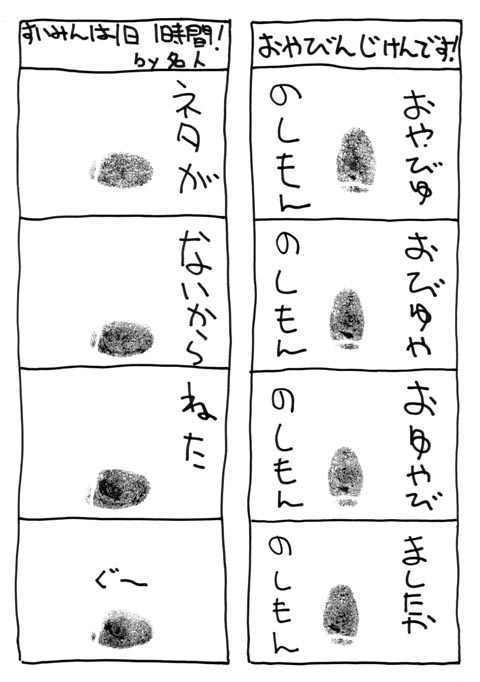 おやびんじけんです!
おやびゆ
のしもん
おびゆや
のしもん
おゆやび
のしもん
ましたか
のしもん
すいみんは1日 1時間!
by 名人
ネタが
ないから
ねた
ぐ〜